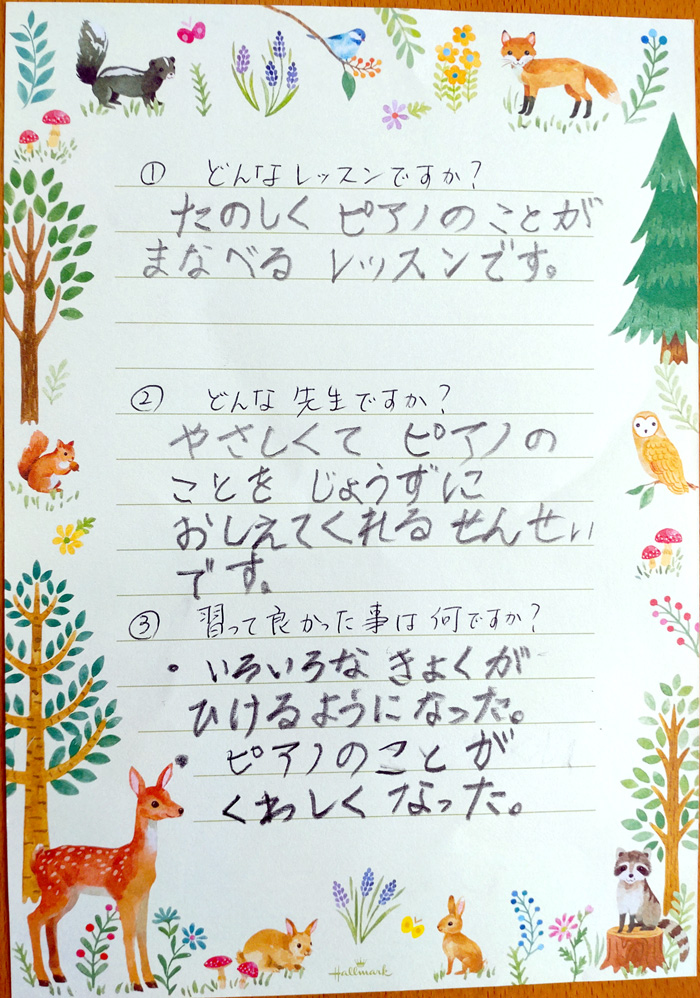 ① どんなレッスンですか?
たのしく ピアノのことが
まなべる レッスンです。
② どんな 先生ですか?
やさしくて ピアノの
ことを じょうずに
おしえてくれる せんせい
です。
③ 習って良かった事は何ですか?
• いろいろな きょくが
ひけるようになった。
• ピアノのことが
くわしく なった。
Hallmark